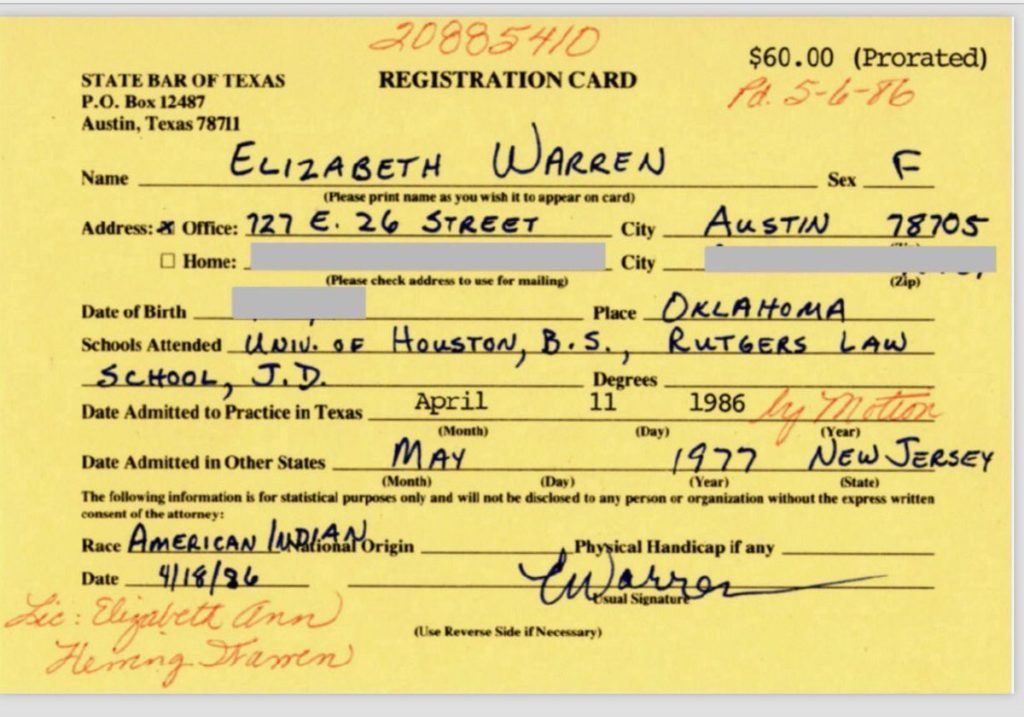 20885410
$60.00 (Prorated)
STATE BAR OF TEXAS
REGISTRATION CARD
Pd. 5-6-86
P.O. Box 12487
Austin, Texas 78711
Name ELIZABETH WARREN Sex F
(Please print name as you wish it to appear on card)
Address: Office: 727 E. 26 STREET City AUSTIN 78705
Home: City
(Please check address to use for mailing) (Zip)
Date of Birth Place OKLAHOMA
Schools Attended UNIV. OF HOUSTON, B.S., RUTGERS LAW
SCHOOL, J.D. Degrees
Date Admitted to Practice in Texas April 11 1986 by Motion
(Month) (Day) (Year)
Date Admitted in Other States MAY 1977 NEW JERSEY
(Month) (Day) (Year) (State)
The following information is for statistical purposes only and will not be disclosed to any person or organization without the express written
consent of the attorney:
Race AMERICAN INDIAN National Origin Physical Handicap if any
Date 4/18/86 EWarren
Usual Signature
Lic: Elizabeth Ann
Herring Warren
(Use Reverse Side if Necessary)